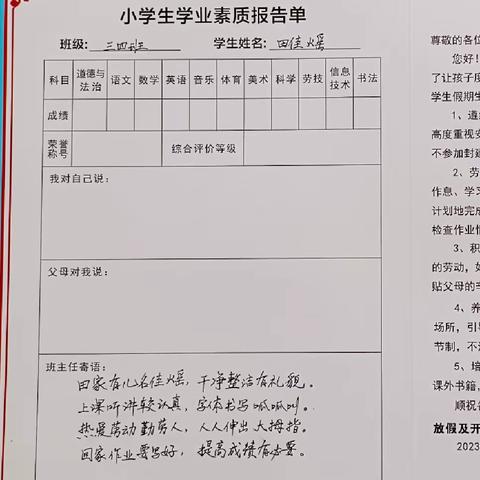 小学生学业素质报告单
班级: 三四班 学生姓名: 田佳瑶
科目 道德与法治 语文 数学 英语 音乐 体育 美术 科学 劳技 信息技术 书法
成绩
荣誉称号 综合评价等级
我对自己说:
父母对我说:
班主任寄语:
田家有儿名佳瑶,干净整洁有礼貌。
上课听讲较认真,字体书写呱呱叫。
热爱劳动勤劳人,人人伸出大拇指。
回家作业要写好,提高成绩有必要。
尊敬的各位
您好!
了让孩子度
学生假期生
1、遵
高度重视安
不参加封建
2、劳
作息、学习
计划地完成
检查作业情
3、积
的劳动,如
贴父母的辛
4、养
场所,引导
节制,不沉
5、培
课外书籍,
顺祝各
放假及开
2023